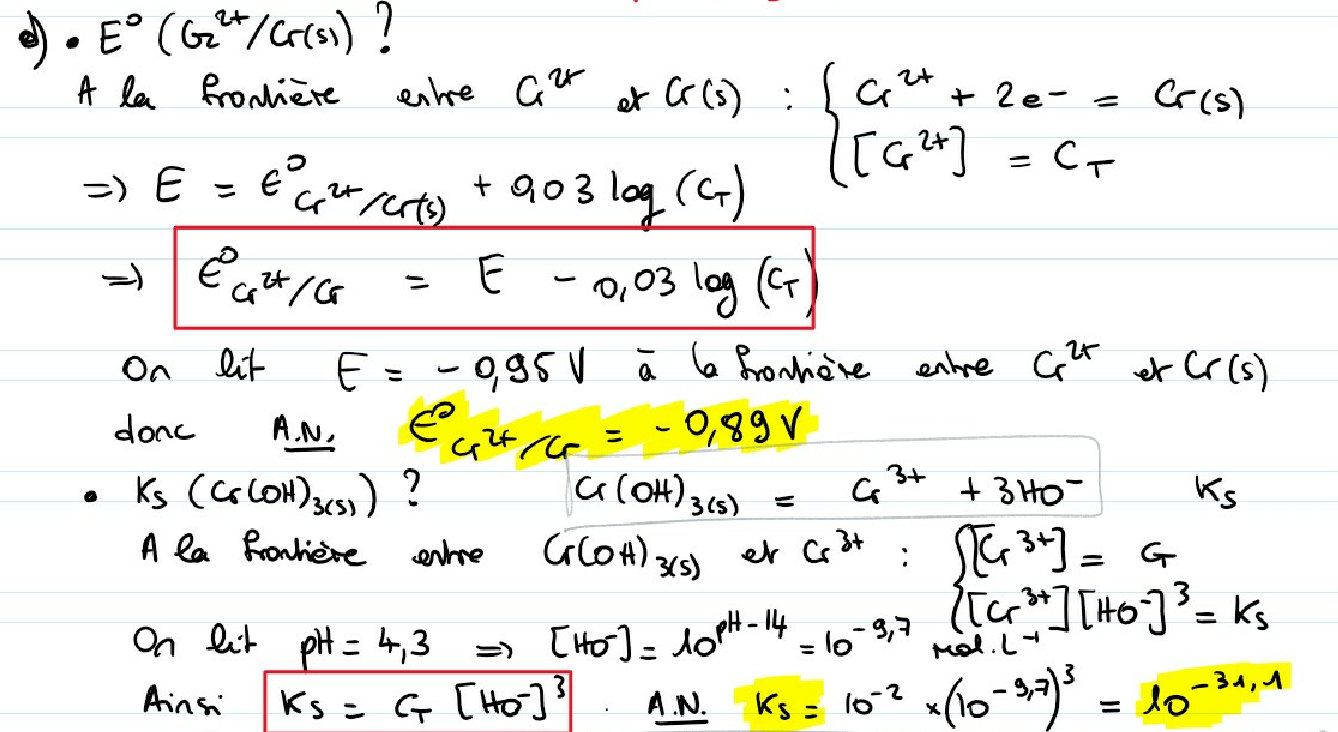 d) • E° (Cr²⁺/Cr(s)) ?
A la frontière entre Cr²⁺ et Cr(s) : { Cr²⁺ + 2e- = Cr(s)
[Cr²⁺] = C_T
=> E = E°_Cr²⁺/Cr(s) + 0,03 log (C_T)
=> E°_Cr²⁺/Cr = E - 0,03 log (C_T)
On lit E = - 0,95 V à la frontière entre Cr²⁺ et Cr(s)
donc A.N. E°_Cr²⁺/Cr = - 0,89 V
• Ks (Cr(OH)₃(s)) ? Cr(OH)₃(s) = Cr³⁺ + 3HO⁻ Ks
A la frontière entre Cr(OH)₃(s) et Cr³⁺ : { [Cr³⁺] = C_T
[Cr³⁺][HO⁻]³ = Ks
On lit pH = 4,3 => [HO⁻] = 10^(pH-14) = 10^(-9,7) mol.L⁻¹
Ainsi Ks = C_T [HO⁻]³ . A.N. Ks = 10⁻² × (10^(-9,7))³ = 10^(-31,1)